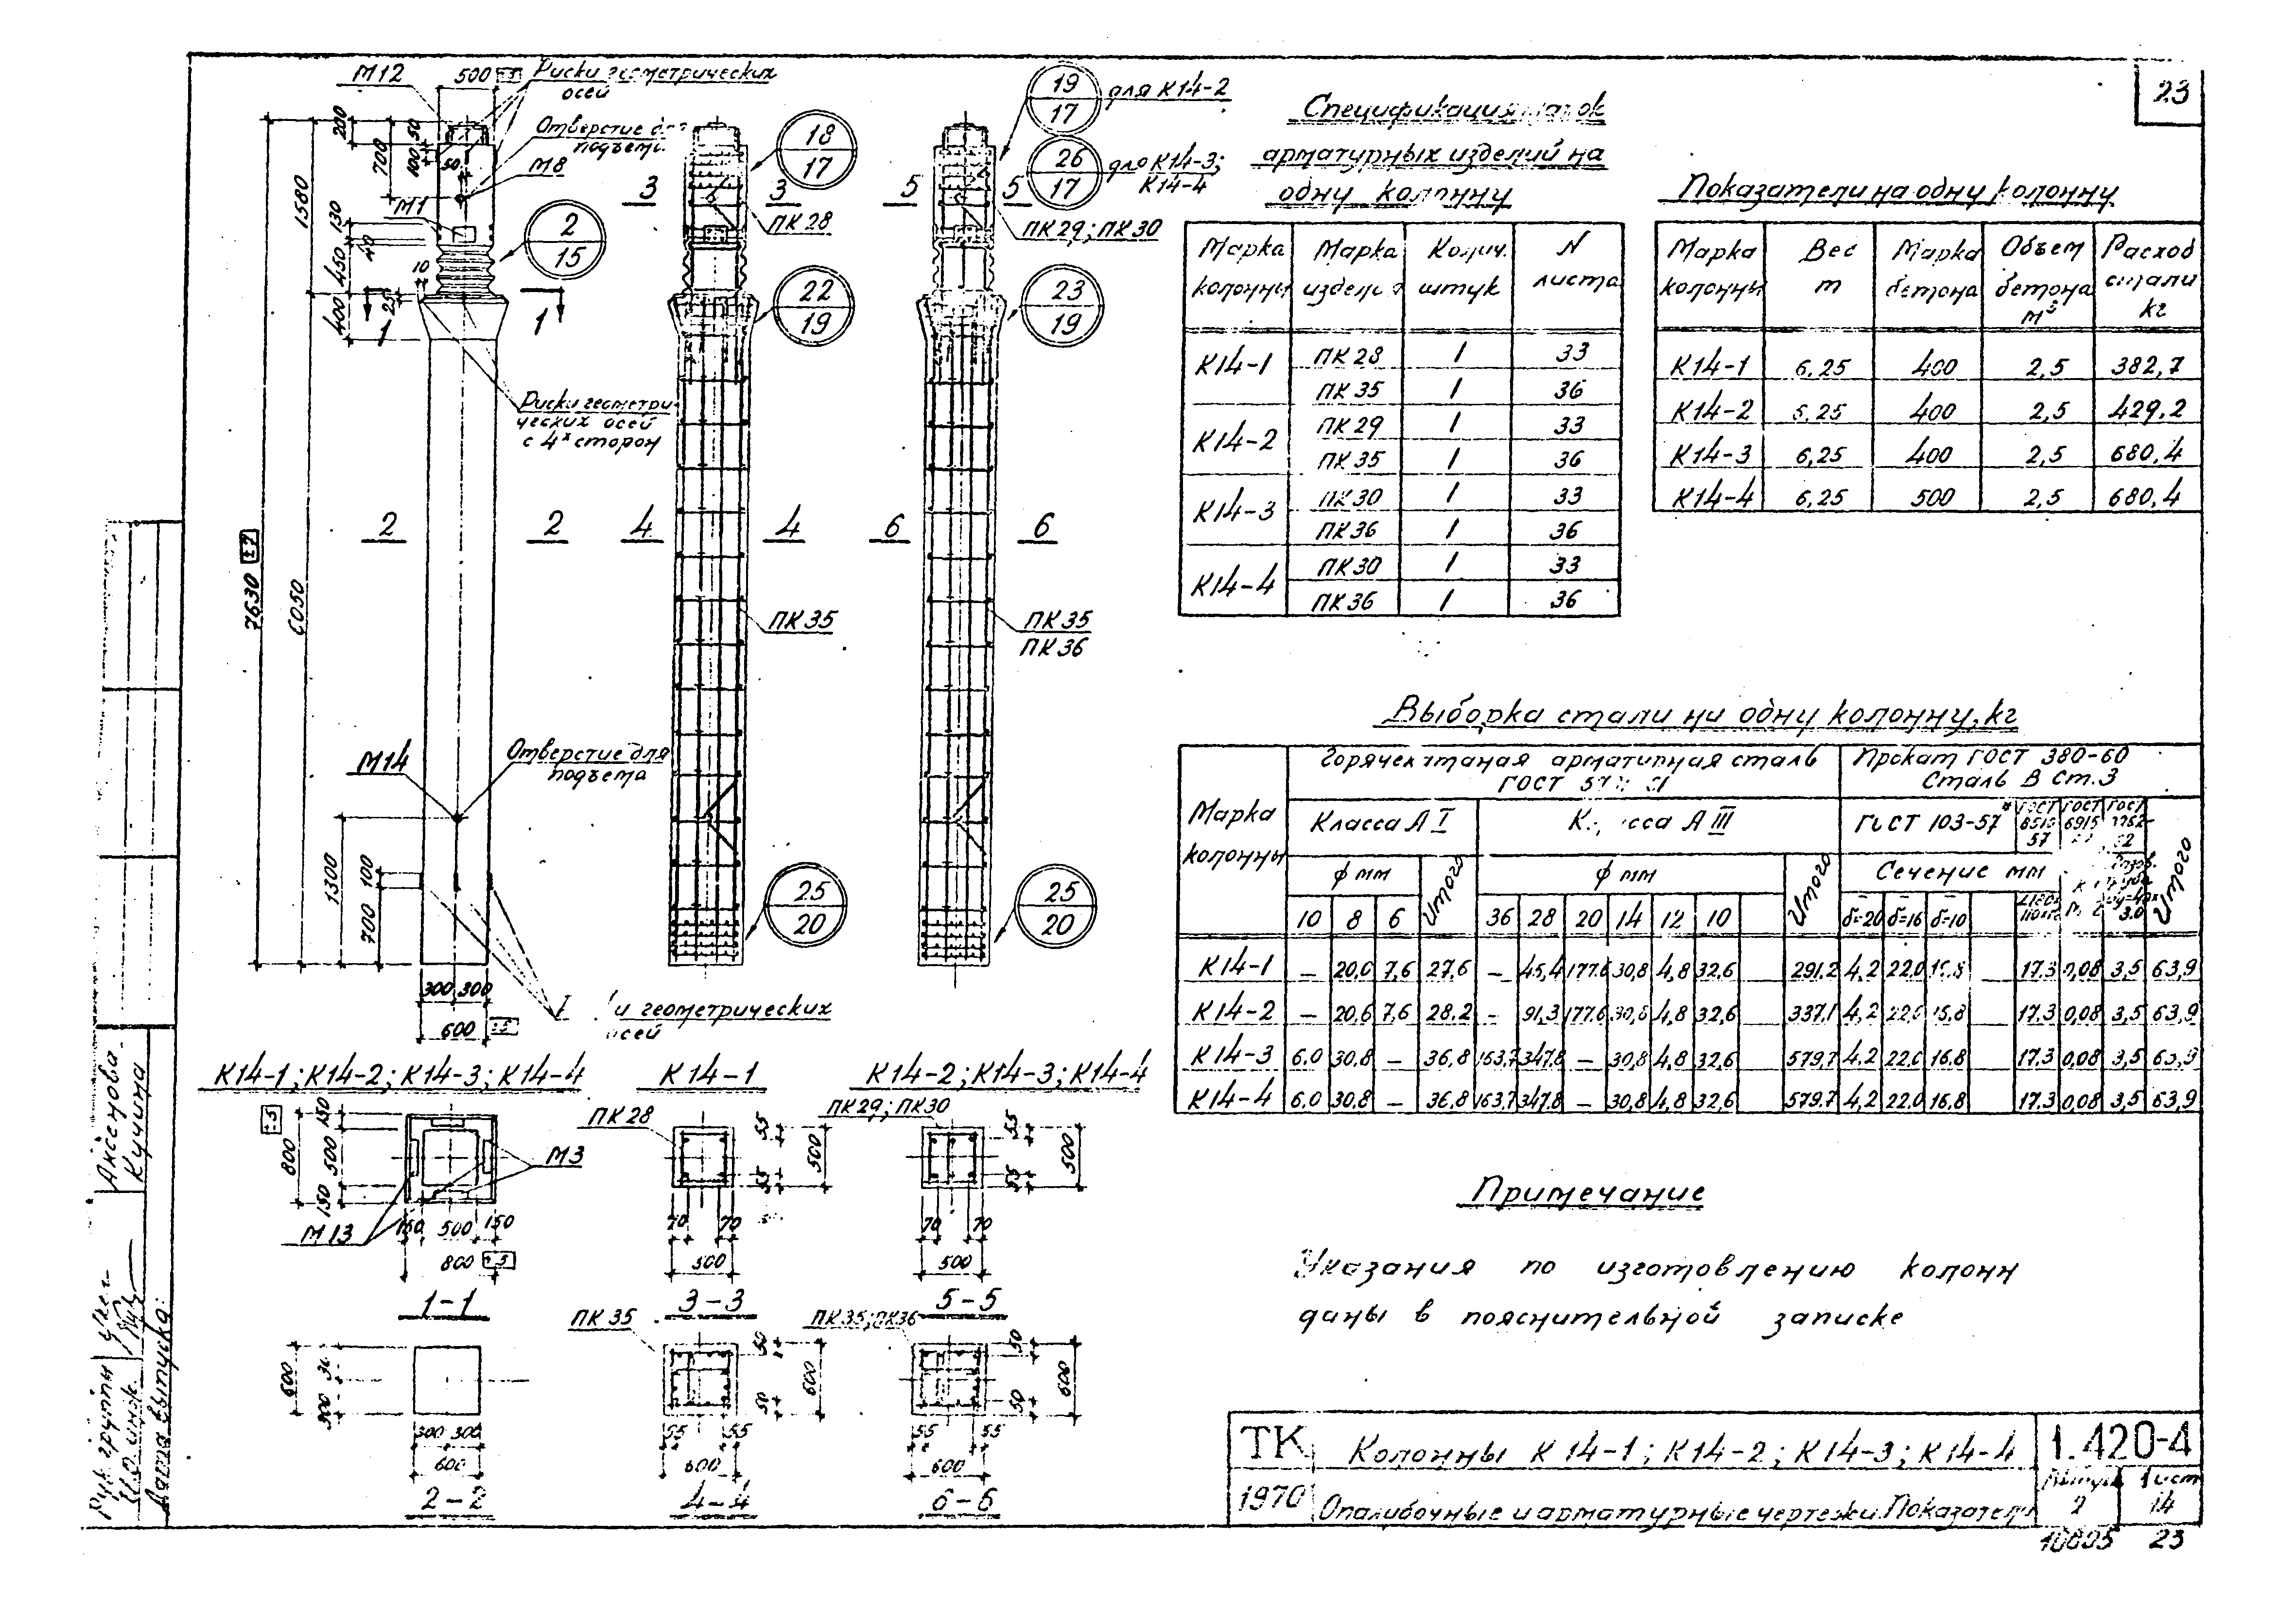 23
М12
500
Риски геометрических
осей
Отверстие для
М8
М1
200
700
50
100
50
1580
130
450
40
10
25
400
1
1
2
15
Риски геометри-
ческих осей
с 4х сторон
2
2
7630 ±7
6050
М14
Отверстие для
подъема
1300
100
700
300 300
600
геометрических
осей
18
17
3
3
ПК 28
22
19
4
4
ПК 35
25
20
19
17
для К14-2
26
17
для К14-3;
К14-4
5
5
ПК 29; ПК 30
23
19
6
6
ПК 35
ПК 36
25
20
К14-1; К14-2; К14-3; К14-4
К 14-1
К14-2; К14-3; К14-4
150
500
150
800
М3
М13
150 500 150
800
1-1
ПК 28
55
55
500
70 70
500
3-3
ПК 29; ПК 30
55
55
500
70 70
500
5-5
600
300
300 300
600
2-2
ПК 35
50
50
600
55 55
600
4-4
ПК 35; ПК 36
50
50
600
55 55
600
6-6
Спецификация
арматурных изделий на
одну колонну
Марка колонны Марка Колич. штук N листа
К14-1 ПК 28 1 33
ПК 35 1 36
К14-2 ПК 29 1 33
ПК 35 1 36
К14-3 ПК 30 1 33
ПК 36 1 36
К14-4 ПК 30 1 33
ПК 36 1 36
Показатели на одну колонну
Марка колонны Вес т Марка бетона Объем бетона м³ Расход стали кг
К14-1 6,25 400 2,5 382,7
К14-2 6,25 400 2,5 429,2
К14-3 6,25 400 2,5 680,4
К14-4 6,25 500 2,5 680,4
Выборка стали на одну колонну, кг
Марка колонны
арматурная сталь
ГОСТ
Прокат ГОСТ 380-60
Сталь В Ст.3
Класса А I
А III
ГОСТ 103-57*
ГОСТ
ГОСТ
ГОСТ
ф мм Итого ф мм Итого Сечение мм Итого
10 8 6 36 28 20 14 12 10 δ=20 δ=16 δ=10
К14-1 — 20,0 7,6 27,6 — 45,4 177,6 30,8 4,8 32,6 291,2 4,2 22,0 16,8 — 17.3 0,08 3,5 63,9
К14-2 — 20,6 7,6 28,2 — 91,3 177,6 30,8 4,8 32,6 337,1 4,2 22,0 16,8 17.3 0,08 3,5 63,9
К14-3 6.0 30.8 — 36.8 163,7 347,8 — 30,8 4,8 32,6 579,7 4.2 22,0 16.8 17.3 0,08 3,5 63,9
К14-4 6.0 30.8 — 36.8 163,7 347,8 — 30,8 4,8 32,6 579.7 4,2 22,0 16,8 17.3 0,08 3,5 63,9
Примечание
Указания по изготовлению колонн
даны в пояснительной записке
ТК
1970
Колонны К 14-1; К14-2; К14-3; К14-4
Опалубочные и арматурные чертежи. Показатели
1.420-4
Выпуск
2
Лист
14
23
Рук. группы
Аксенова
Кучина
Дата выпуска: